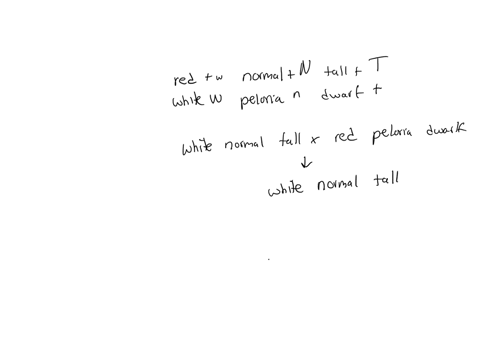 red +w normal+N tall + T
white W peloria n dwarf t
white normal tall x red peloria dwarf
↓
white normal tall